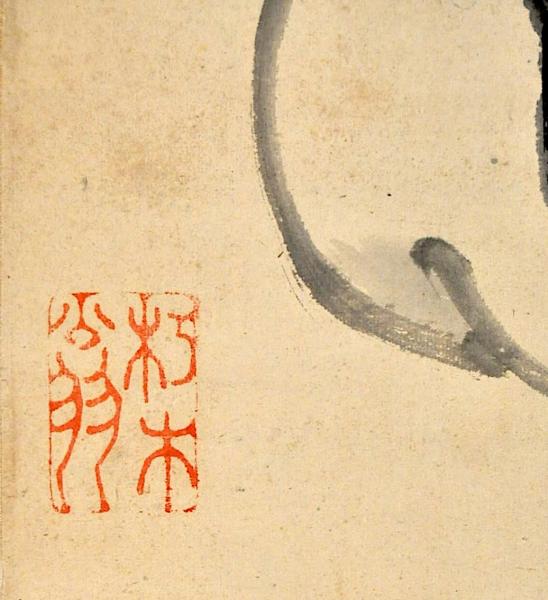 朽木
翁